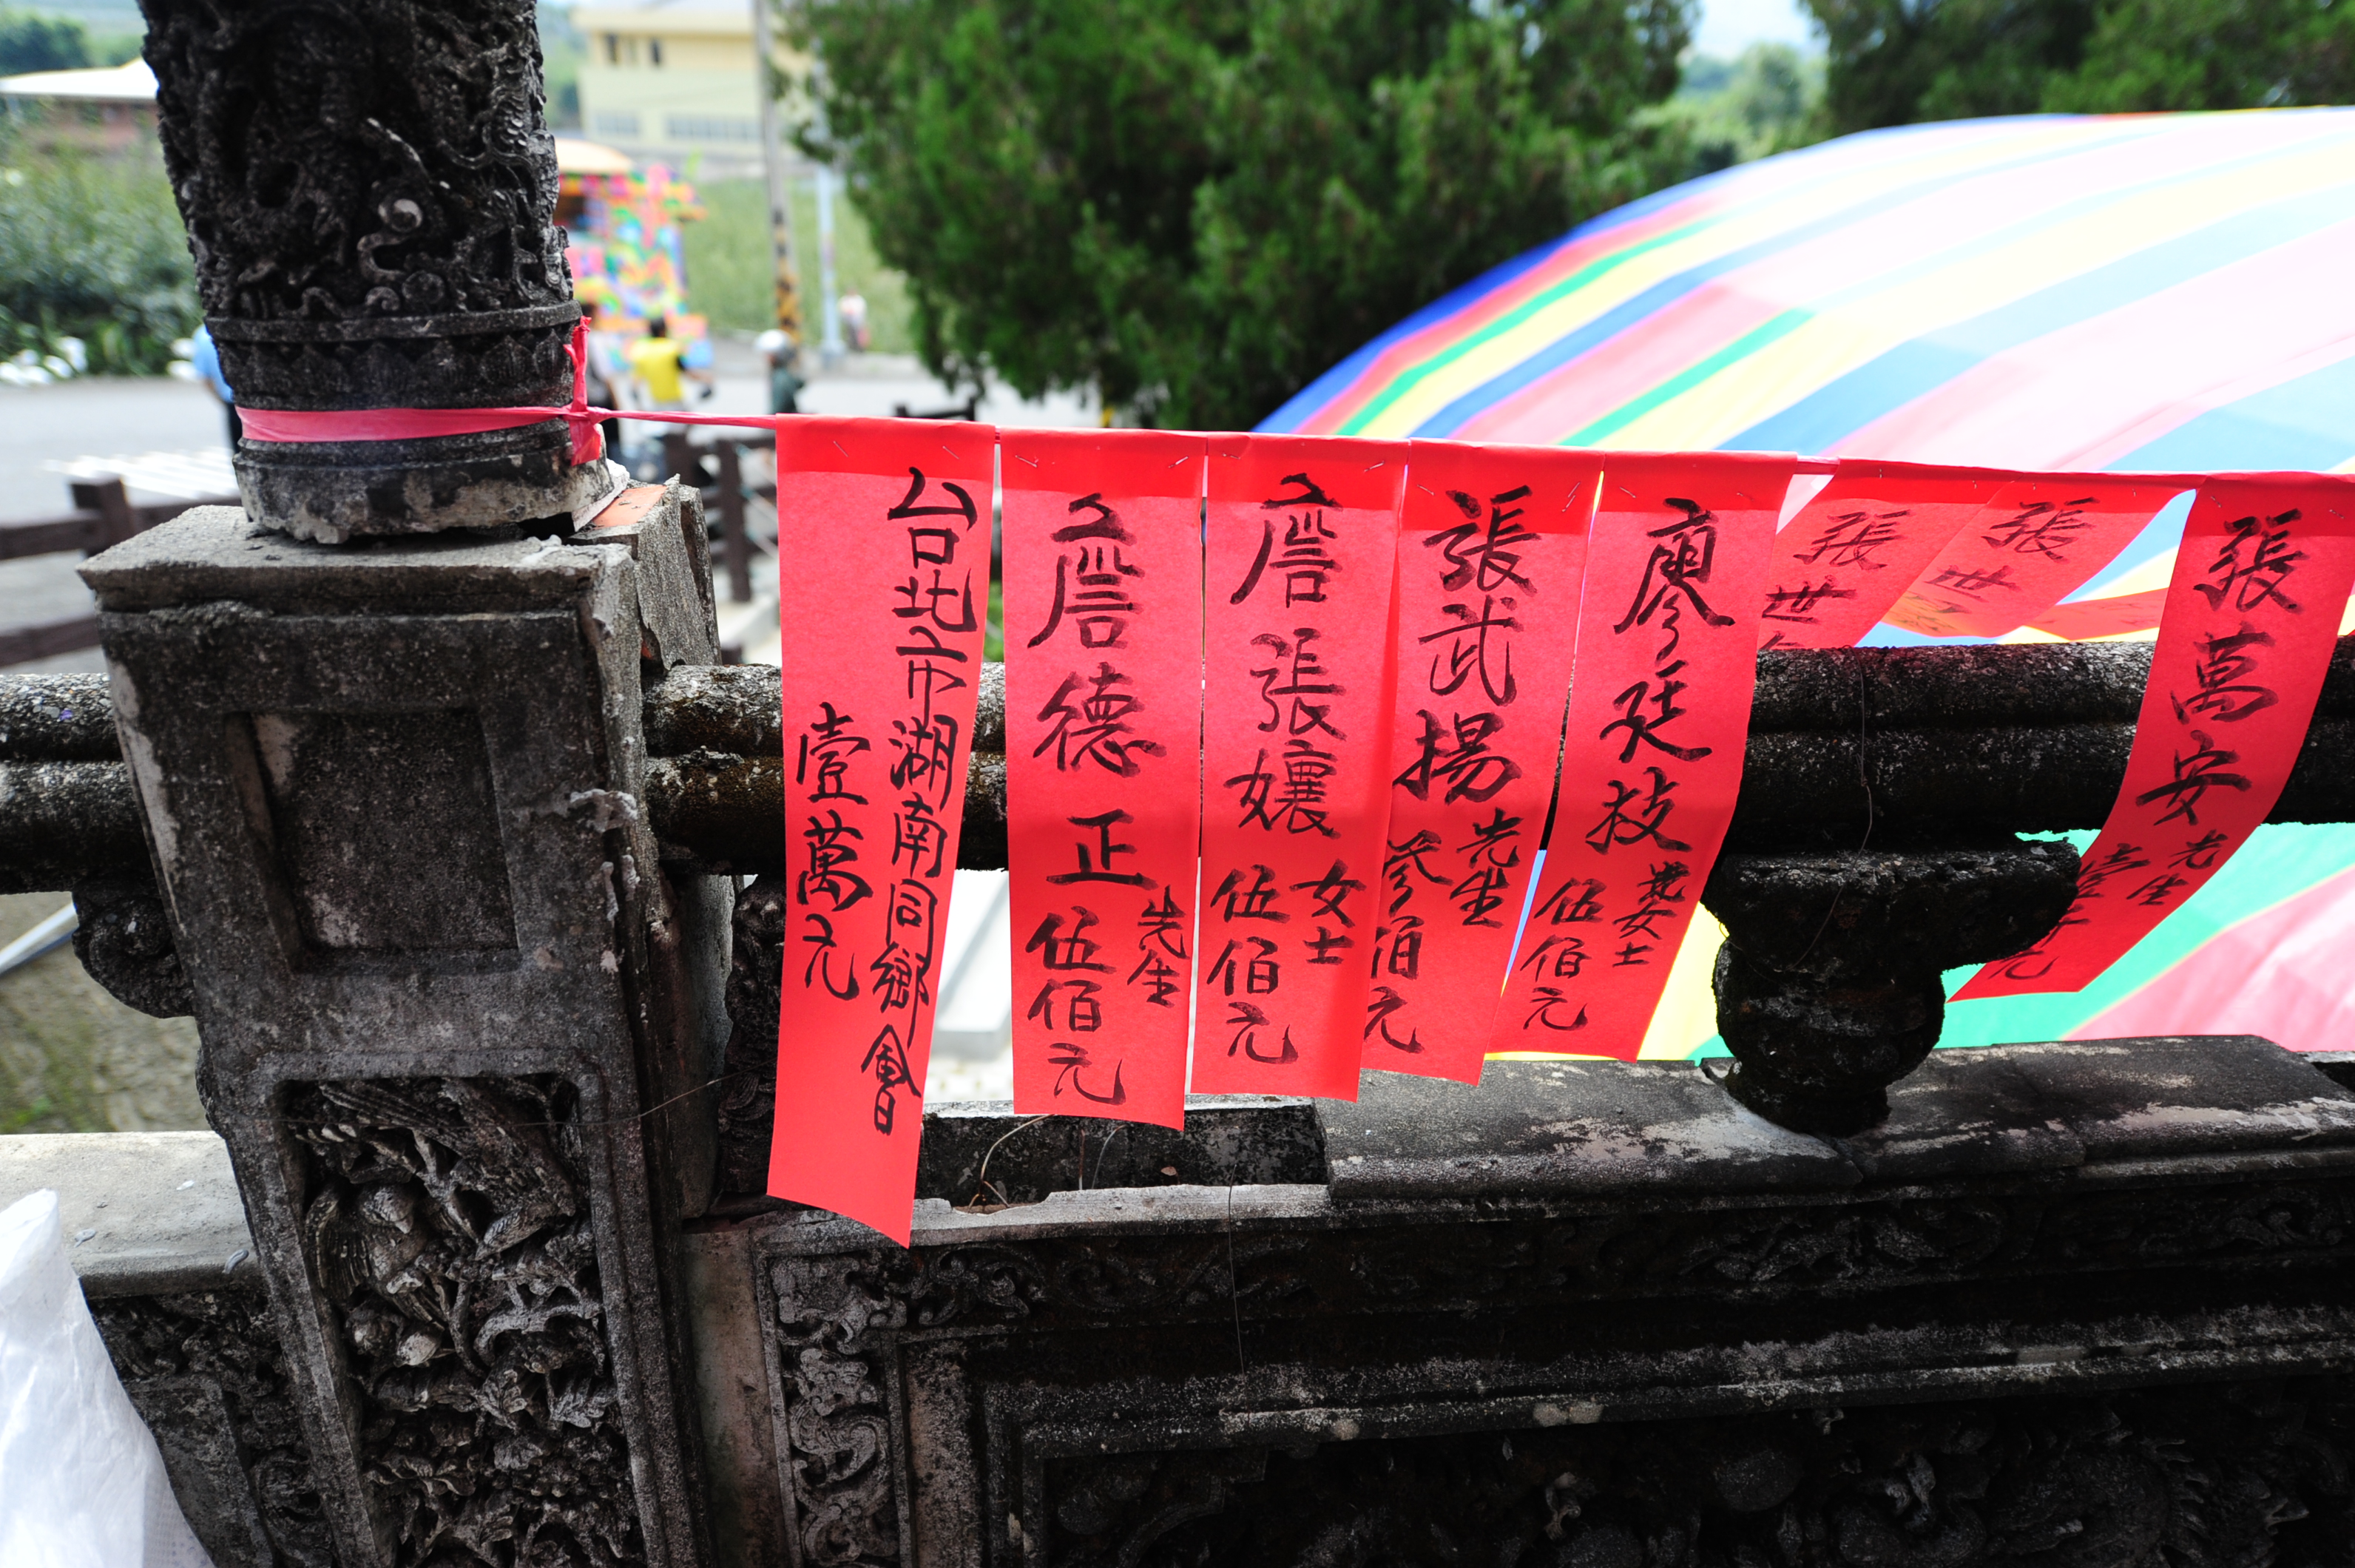 台北市湖南同鄉會
壹萬元
詹德正先生
伍佰元
詹張孃女士
伍佰元
張武揚先生
參佰元
廖廷技
女士
伍佰元
張世
張世
張萬安先生
壹仟元